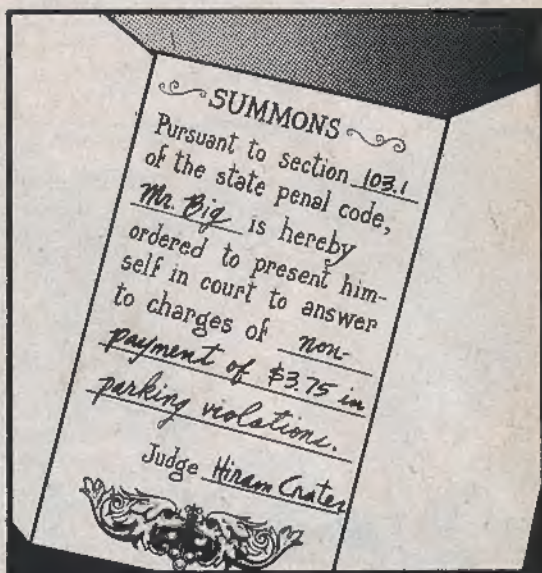 SUMMONS
Pursuant to section 103.1
of the state penal code,
Mr. Big is hereby
ordered to present him-
self in court to answer
to charges of non-
payment of $3.75 in
parking violations.
Judge Hiram Crates